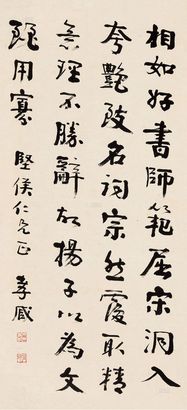 相如好書師範屈宋洞入
夸艷致名詞宗然覆取精
意理不勝辭故揚子以為文
麗用寡 堅侯仁兄正 孝臧